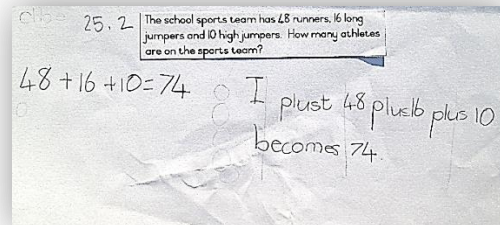 25.2
The school sports team has 48 runners, 16 long
jumpers and 10 high jumpers. How many athletes
are on the sports team?
48 + 16 + 10 = 74
I plust 48 plus16 plus 10
becomes 74.